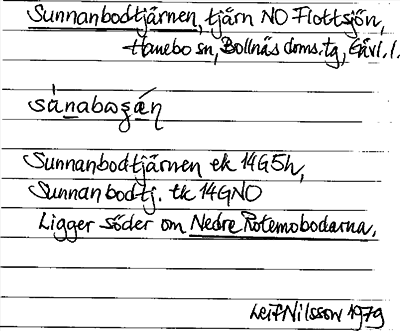 Sunnanbodtjärnen, tjärn NO Flottsjön,
Hanebo sn, Bollnäs doms.tg, Gävl. l.
sànabosʒǽn
Sunnanbodtjärnen ek 14G5h,
Sunnanbodtj. tk 14GNO
Ligger söder om Nedre Rotemobodarna.
Leif Nilsson 1979